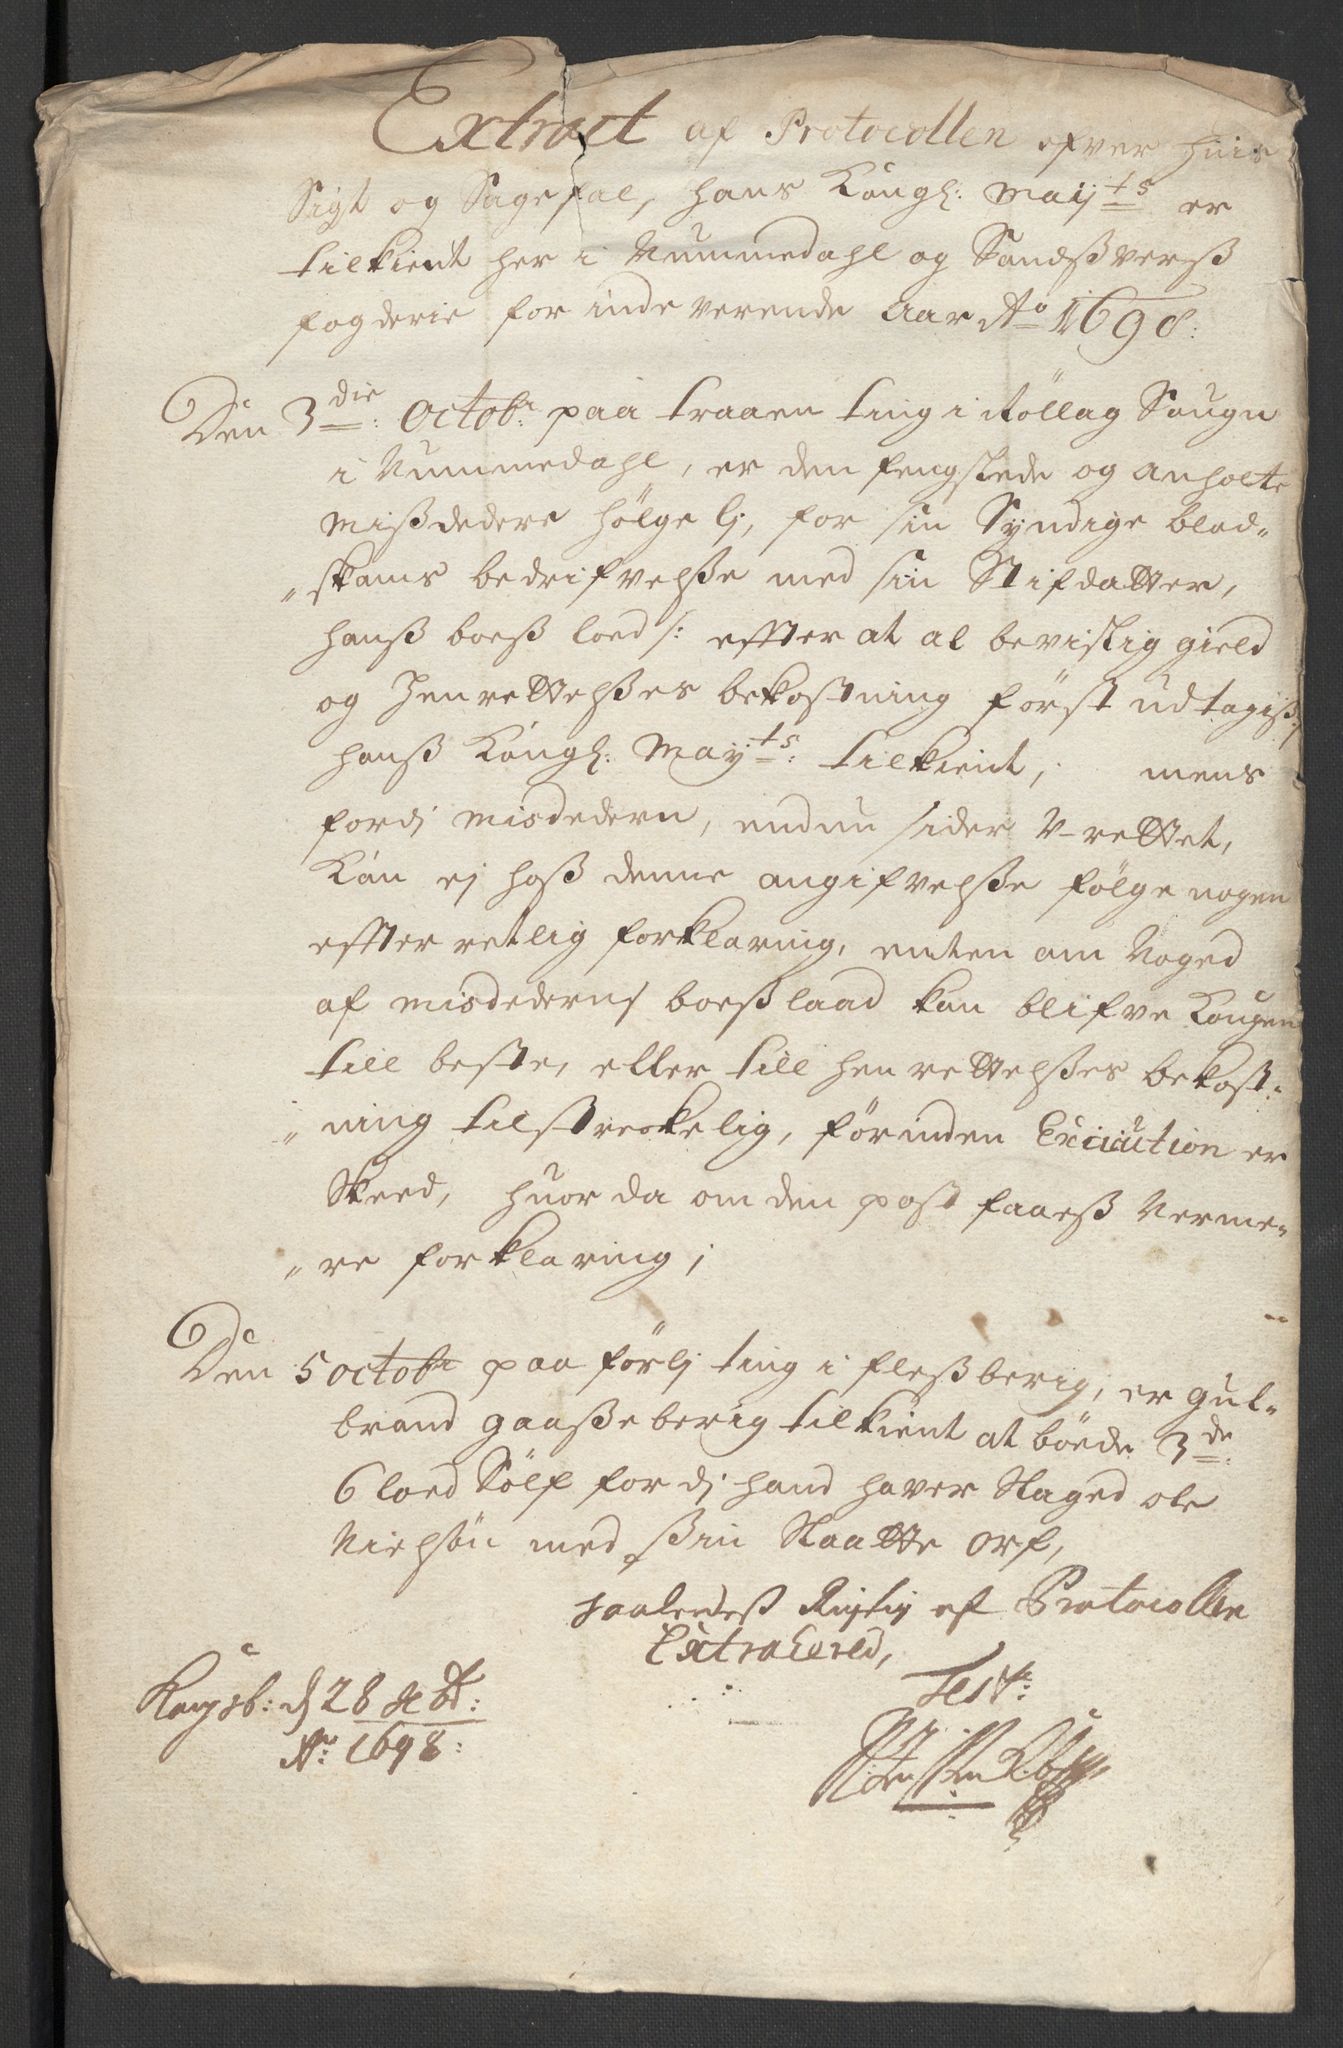 Extract af Protocollen ofver huis
Sigt og Sagefal, hans Kongl: Maij:ts er
tilkient her i Nummedahl og Sandßverß
fogderie for inde verende Aar Ao 1698:
Den 3die: Octobr: paa traaen ting i Röllag Sougn
i Nummedahl, er den fengslede og anholte
Mißdedere Hölge lj, for sin Syndige blod-
skams bedrifvelße med sin Stifdatter,
hanß boeß loed /: effter at al bevislig gield
og Henrettelßes bekostning först udtagiß/
hanß Kongl: May:ts: tilkient, mens
fordj misdedern, endnu sider V-rettet,
Kan ej hoß denne angifvelße fölge nogen
effter retlig forklaring, enten om Noged
af misdederns boeßlaad kan blifve Kongen
till beste, eller till henrettelßes bekost-
ning tilstreckelig, förinden Execution er
Skeed, huor da om den post faaeß Verme-
re forklaring;
Den 5 octobr paa förlj ting i Fleßberig, er Gul-
brand Gaaßeberig tilkient at böede 3de:
6 loed Sölf for dj hand haver Slaged ole
Nielsön med ßin Slaatte orf,
saaledeß Rigtig af Protocollen
Extrahered,
Kongsb: d 28 Xbr:
Ao: 1698:
Test: